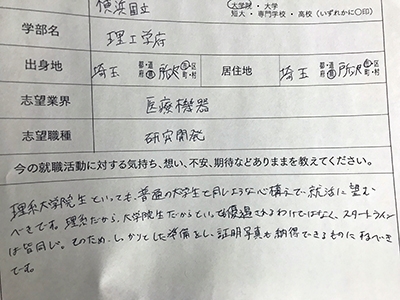 横浜国立
大学院 ・ 大学
短大 ・ 専門学校 ・ 高校（いずれかに○印）
学部名 理工学府
出身地 埼玉 都・道 府・県 所沢 市・区 町・村 居住地 埼玉 都・道 府・県 所沢 市・区 町・村
志望業界 医療機器
志望職種 研究開発
今の就職活動に対する気持ち、想い、不安、期待などありままを教えてください。
理系大学院生といっても、普通の大学生と同じような心構えで就活に望む
べきです。理系だから、大学院生だからといって優遇されるわけではなく、スタートライン
は皆同じ。そのため、しっかりとした準備をし、証明写真も納得できるものにすべき
です。